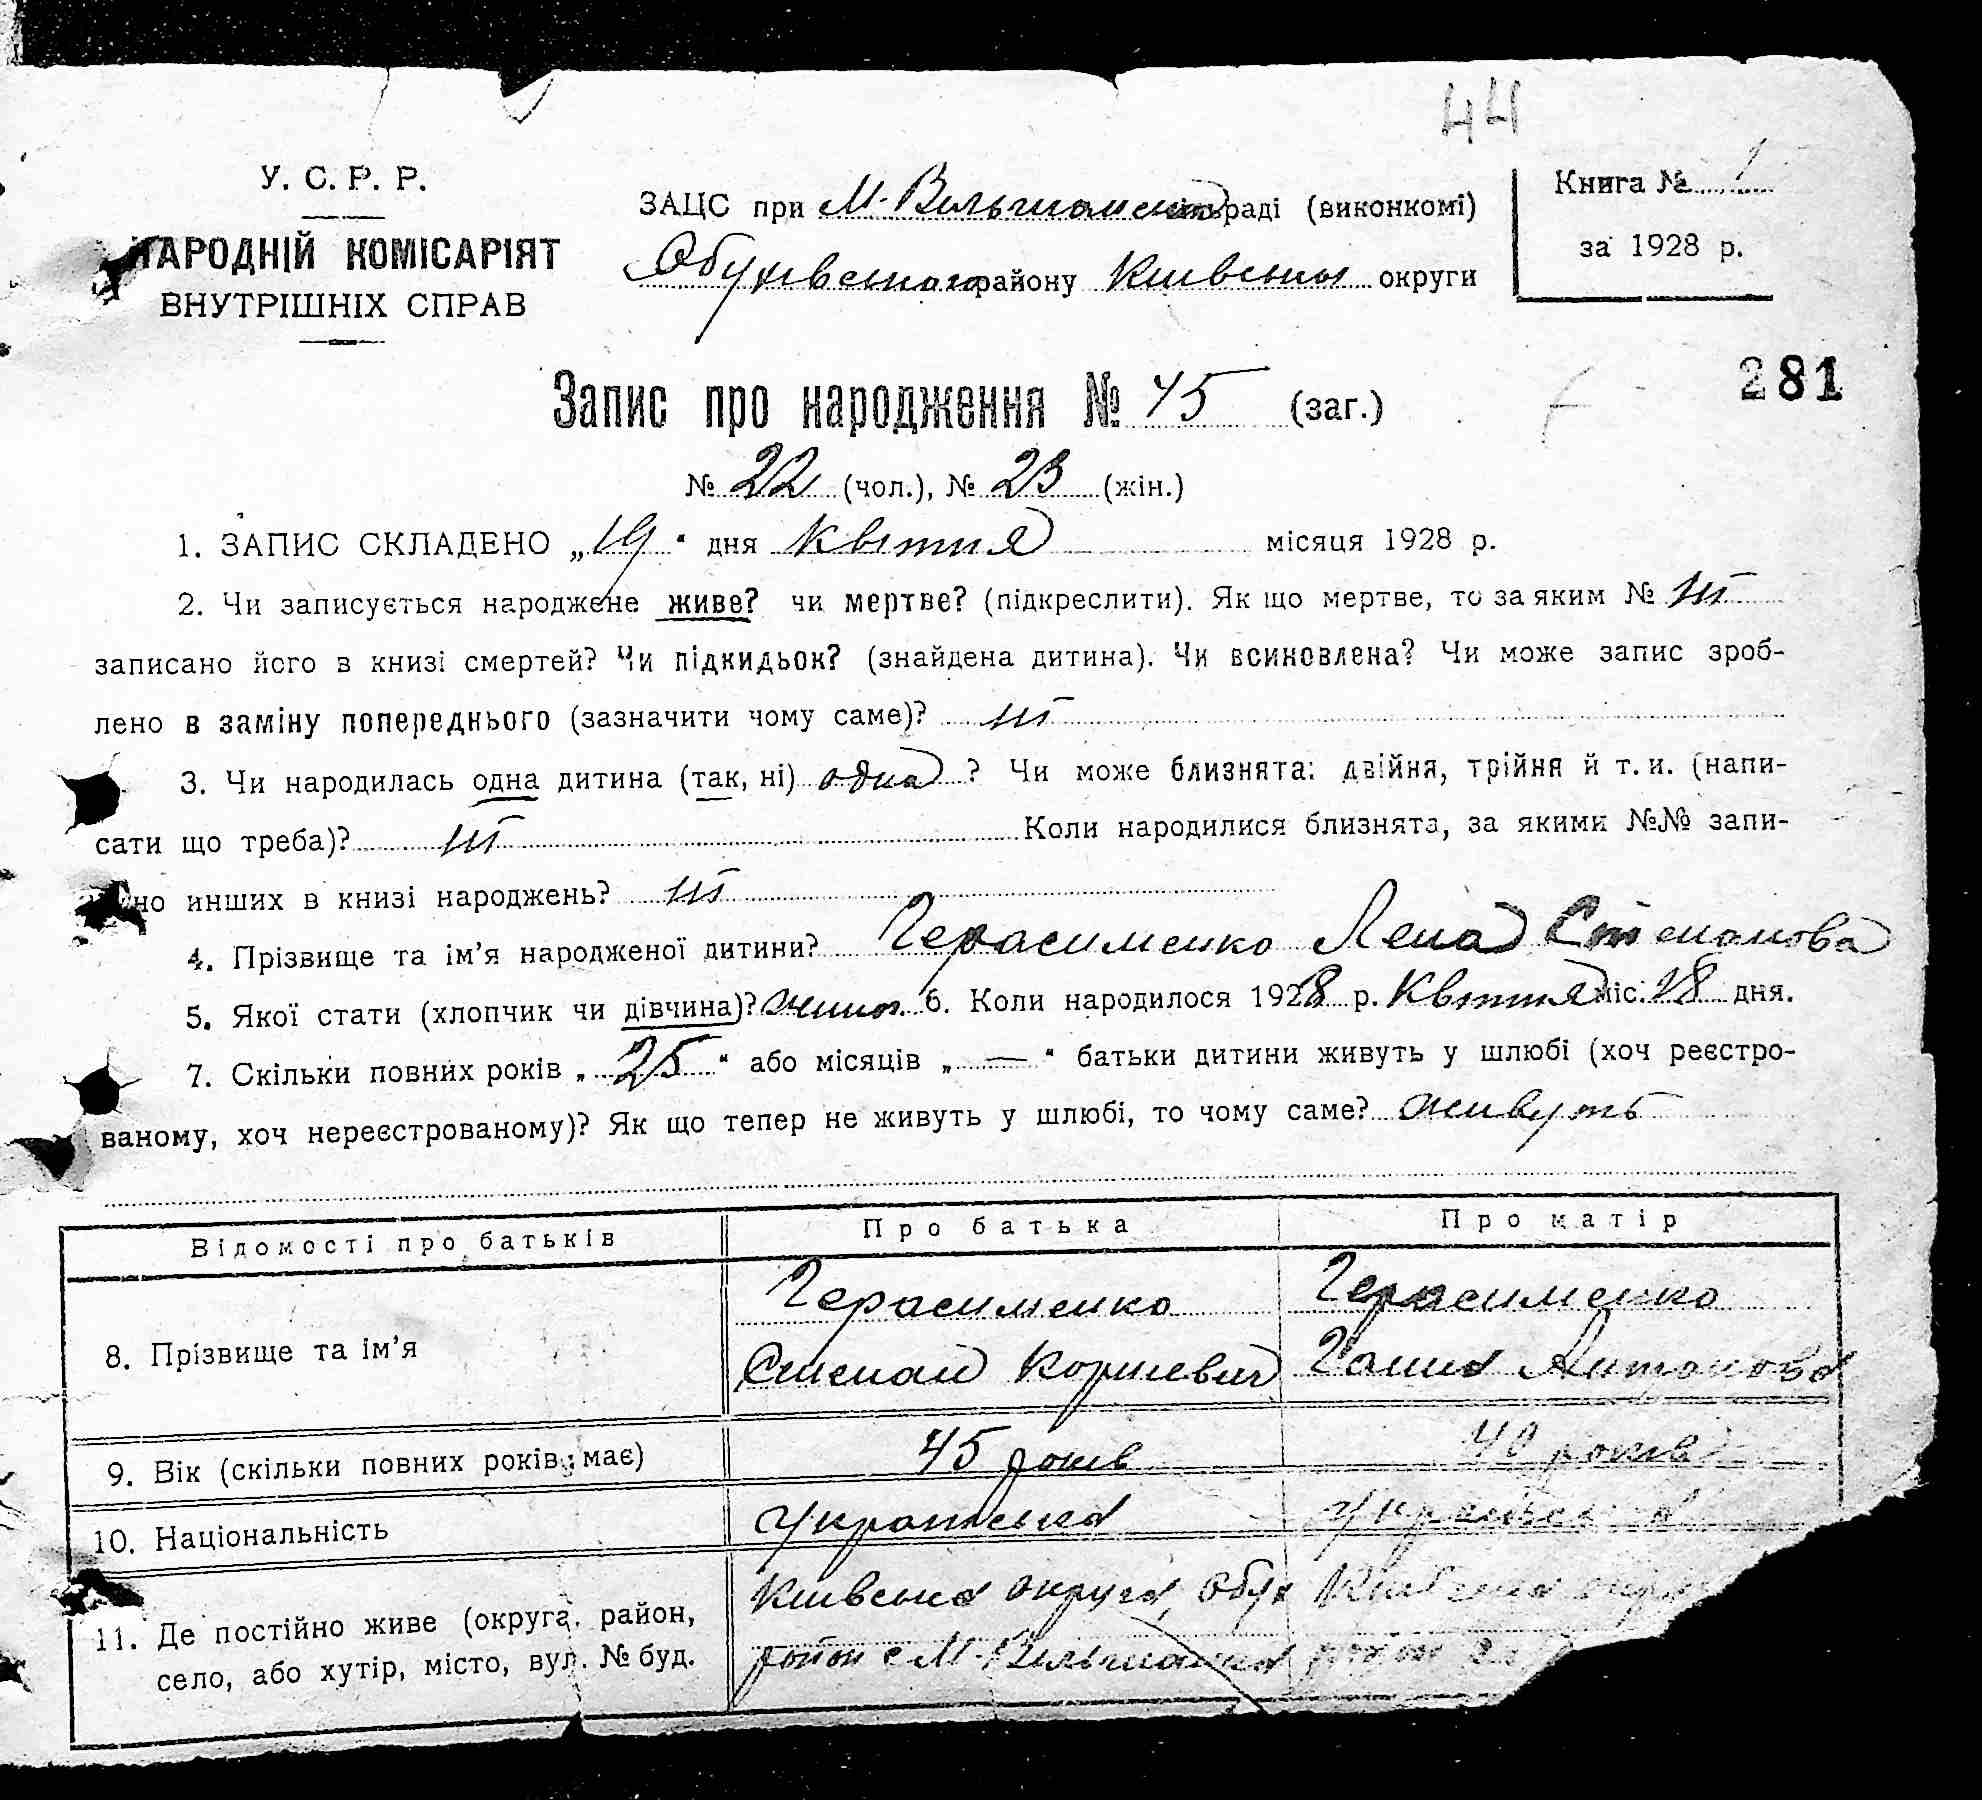 44
У. С. Р. Р.
НАРОДНІЙ КОМІСАРІЯТ
ВНУТРІШНІХ СПРАВ
ЗАЦС при М. Вільшанській раді (виконкомі)
Обухівського району Київської округи
Книга № 1
за 1928 р.
281
Запис про народження № 45 (заг.)
№ 22 (чол.), № 23 (жін.)
1. ЗАПИС СКЛАДЕНО „19“ дня квітня місяця 1928 р.
2. Чи записується народжене живе? чи мертве? (підкреслити). Як що мертве, то за яким № ні
записано його в книзі смертей? Чи підкидьок? (знайдена дитина). Чи всиновлена? Чи може запис зроб-
лено в заміну попереднього (зазначити чому саме)? ні
3. Чи народилась одна дитина (так, ні) одна ? Чи може близнята: двійня, трійня й т. и. (напи-
сати що треба)? ні Коли народилися близнята, за якими №№ запи-
но инших в книзі народжень? ні
4. Прізвище та ім’я народженої дитини? Герасименко Лена Степанова
5. Якої стати (хлопчик чи дівчина)? жіноч. 6. Коли народилося 1928 р. Квітня міс. 18 дня.
7. Скільки повних років „25“ або місяців „—“ батьки дитини живуть у шлюбі (хоч реєстро-
ваному, хоч нереєстрованому)? Як що тепер не живуть у шлюбі, то чому саме? живуть
Відомості про батьків Про батька Про матір
8. Прізвище та ім’я
Герасименко
Степан Корнієвич
Герасименко
Ганна Антонова
9. Вік (скільки повних років має) 45 років 40 років
10. Національність Українська Українська
11. Де постійно живе (округа, район,
село, або хутір, місто, вул. № буд.
Київська округа, Обух
район с М. Вільшанка
Київська окру
район